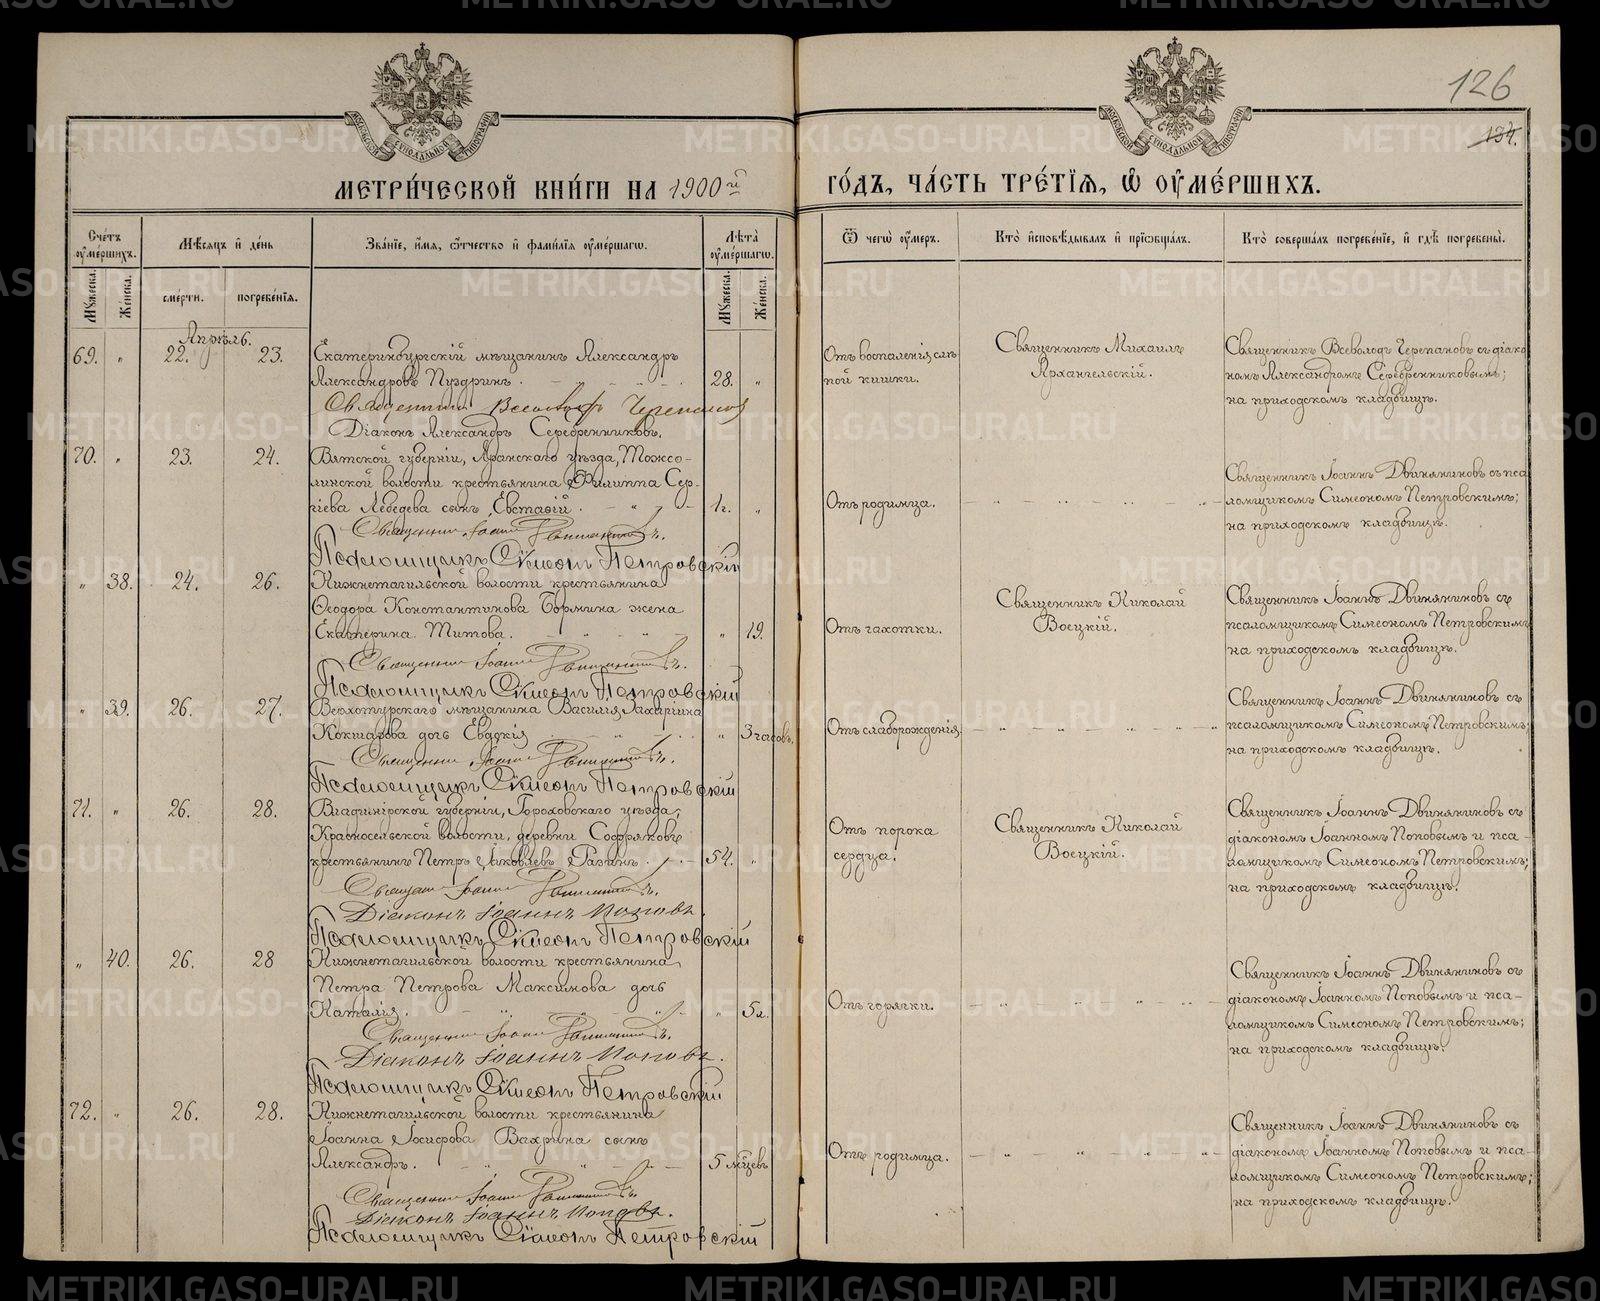 126
134.
МЕТРИ́ЧЕСКОЙ КНИ́ГИ НА 1900й ГО́ДЪ, ЧА́СТЬ ТРЕ́ТІЯ, Ѽ ОУ҆МЕ́РШИХЪ.
Счетъ оумершихъ.
Мѣсяцъ и день
Званіе, имя, отчество и фамилія оумершагѡ.
Лѣта оумершагѡ.
Ѿ чегѡ оумеръ.
Кто исповѣдывалъ и пріобщалъ.
Кто совершалъ погребеніе, и гдѣ погребены.
Мужеска.
Женска.
смерти.
погребенія.
Мужеска.
Женска.
Апрѣль.
69. " 22. 23. Екатеринбургскій мѣщанинъ Александръ
Александровъ Пуздринъ. 28. "
Отъ воспаленія слѣ
пой кишки.
Священникъ Михаилъ
Архангельскій.
Священникъ Всеволодъ Черепановъ съ діако
номъ Александромъ Серебренниковымъ;
на приходскомъ кладбищѣ.
Священникъ Всеволодъ Черепановъ
Діаконъ Александръ Серебренниковъ.
70. " 23. 24. Вятской губерніи, Яранскаго уѣзда, Тожсо-
линской волости крестьянина Филиппа Сер-
гіева Лебедева сынъ Евстафій. 1г. "
Отъ родимца.
Священникъ Іоаннъ Двиняниновъ съ пса
ломщикомъ Симеономъ Петровскимъ;
на приходскомъ кладбищѣ.
Священникъ Іоаннъ Двиняниновъ.
Псаломщикъ Симеонъ Петровскій
" 38. 24. 26. Нижнетагильской волости крестьянина
Ѳеодора Константинова Бормина жена
Екатерина Титова. " 19.
Отъ чахотки.
Священникъ Николай
Воецкій.
Священникъ Іоаннъ Двиняниновъ съ
псаломщикомъ Симеономъ Петровскимъ
на приходскомъ кладбищѣ.
Священникъ Іоаннъ Двиняниновъ.
Псаломщикъ Симеонъ Петровскій
" 39. 26. 27. Верхотурскаго мѣщанина Василія Захаріина
Кокшарова дочь Евдокія " 3 часовъ.
Отъ слаборожденія.
Священникъ Іоаннъ Двиняниновъ съ
псаломщикомъ Симеономъ Петровскимъ;
на приходскомъ кладбищѣ.
Священникъ Іоаннъ Двиняниновъ.
Псаломщикъ Симеонъ Петровскій
71. " 26. 28. Владимірской губерніи, Гороховскаго уѣзда,
Красносельской волости, деревни Софряковъ
крестьянинъ Петръ Яковлевъ Разинъ. 54. "
Отъ порока
сердца.
Священникъ Николай
Воецкій.
Священникъ Іоаннъ Двиняниновъ съ
діакономъ Іоанномъ Поповымъ и пса-
ломщикомъ Симеономъ Петровскимъ;
на приходскомъ кладбищѣ.
Священникъ Іоаннъ Двиняниновъ.
Діаконъ Іоаннъ Поповъ.
Псаломщикъ Симеонъ Петровскій
" 40. 26. 28 Нижнетагильской волости крестьянина
Петра Петрова Максимова дочь
Наталія. " 5л.
Отъ горячки.
Священникъ Іоаннъ Двиняниновъ съ
діакономъ Іоанномъ Поповымъ и пса-
ломщикомъ Симеономъ Петровскимъ;
на приходскомъ кладбищѣ.
Священникъ Іоаннъ Двиняниновъ.
Діаконъ Іоаннъ Поповъ.
Псаломщикъ Симеонъ Петровскій
72. " 26. 28. Нижнетагильской волости крестьянина
Іоанна Іосифова Вахрина сынъ
Александръ. 5 мѣцевъ
Отъ родимца.
Священникъ Іоаннъ Двиняниновъ съ
діакономъ Іоанномъ Поповымъ и пса-
ломщикомъ Симеономъ Петровскимъ;
на приходскомъ кладбищѣ.
Священникъ Іоаннъ Двиняниновъ.
Діаконъ Іоаннъ Поповъ.
Псаломщикъ Симеонъ Петровскій
METRIKI.GASO-URAL.RU